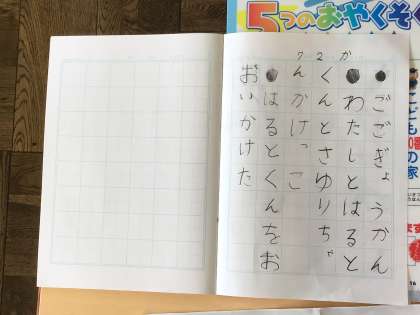 5つのおやくそく
●ごごぎょうかん
●わたしとはると
くんとさゆりちゃ
んかけっこ
●はるとくんをお
おいかけた
こども
0番
の家